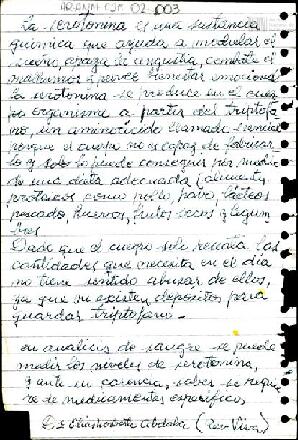 La serotonina es una sustancia
química que ayuda a modular el
sueño, apaga la angustia, combate el
y produce bienestar emocional
la serotonina se produce en el cuer
po organismo a partir del triptofa
no, un aminoácido llamado esencial
porque el cuerpo no es capaz de fabricar
lo y solo lo puede conseguir por medio
de una dieta adecuada (alimentos
proteicos como pollo, pavo, lácteos
pescado, huevos, frutos secos y legum
bres
Dado que el cuerpo solo necesita las
cantidades que necesita en el día
no tiene sentido abusar de ellos,
ya que no existen depósitos para
guardar triptofano.
en análisis de sangre se puede
medir los niveles de serotonina,
y ante su carencia, saber se requie
re de medicamentos específicos,
Elisabetta Abdala